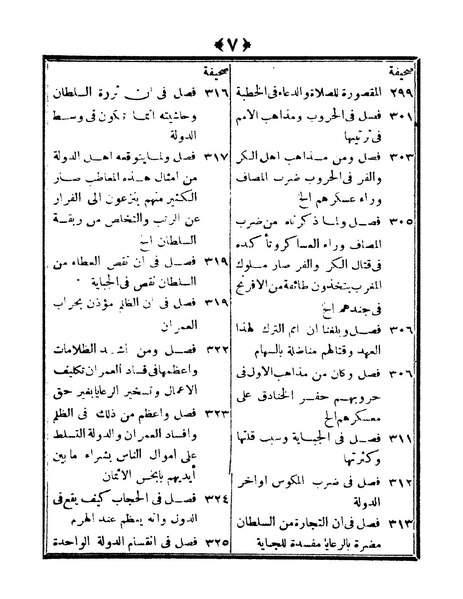 ﴿٧﴾
صحيفة
٢٩٩ المقصورة للصلاة والدعاء فى الخطبة
٣٠١ فصل فى الحروب ومذاهب الامم
فى ترتيبها
٣٠٣ فصل ومن مذاهب اهل الكر
والفر فى الحروب ضرب المصاف
وراء عسكرهم الخ
٣٠٥ فصل ولما ذكرناه من ضرب
المصاف وراء العساكر وتأكده
فى قتال الكر والفر صار ملوك
المغرب يتخذون طائفة من الافرنج
فى جندهم الخ
٣٠٦ فصل وبلغنا ان امم الترك لهذا
العهد وقتالهم مناضلة بالسهام
٣٠٦ فصل وكان من مذاهب الاول فى
حروبهم حفر الخنادق على
معسكرهم الخ
٣١١ فصل فى الجباية وسبب قلتها
وكثرتها
٣١٢ فصل فى ضرب المكوس اواخر
الدولة
٣١٣ فصل فى ان التجارة من السلطان
مضرة بالرعايا مفسدة للجباية
صحيفة
٣١٦ فصل فى ان ثروة السلطان
وحاشيته انما تكون فى وسط
الدولة
٣١٧ فصل ولما يتوقعه اهل الدولة
من أمثال هذه المعاطب صار
الكثير منهم ينزعون الى الفرار
عن الرتب والتخلص من ربقة
السلطان الخ
٣١٩ فصل فى ان نقص العطاء من
السلطان نقص فى الجباية
٣١٩ فصل فى ان الظلم مؤذن بخراب
العمران
٣٢٢ فصل ومن أشد الظلامات
واعظمها فى فساد العمران تكليف
الاعمال وتسخير الرعايا بغير حق
٣٢٣ فصل واعظم من ذلك فى الظلم
وافساد العمران والدولة التسلط
على اموال الناس بشراء ما بين
أيديهم بأبخس الاثمان
٣٢٤ فصل فى الحجاب كيف يقع فى
الدول وانه يعظم عند الهرم
٣٢٥ فصل فى انقسام الدولة الواحدة